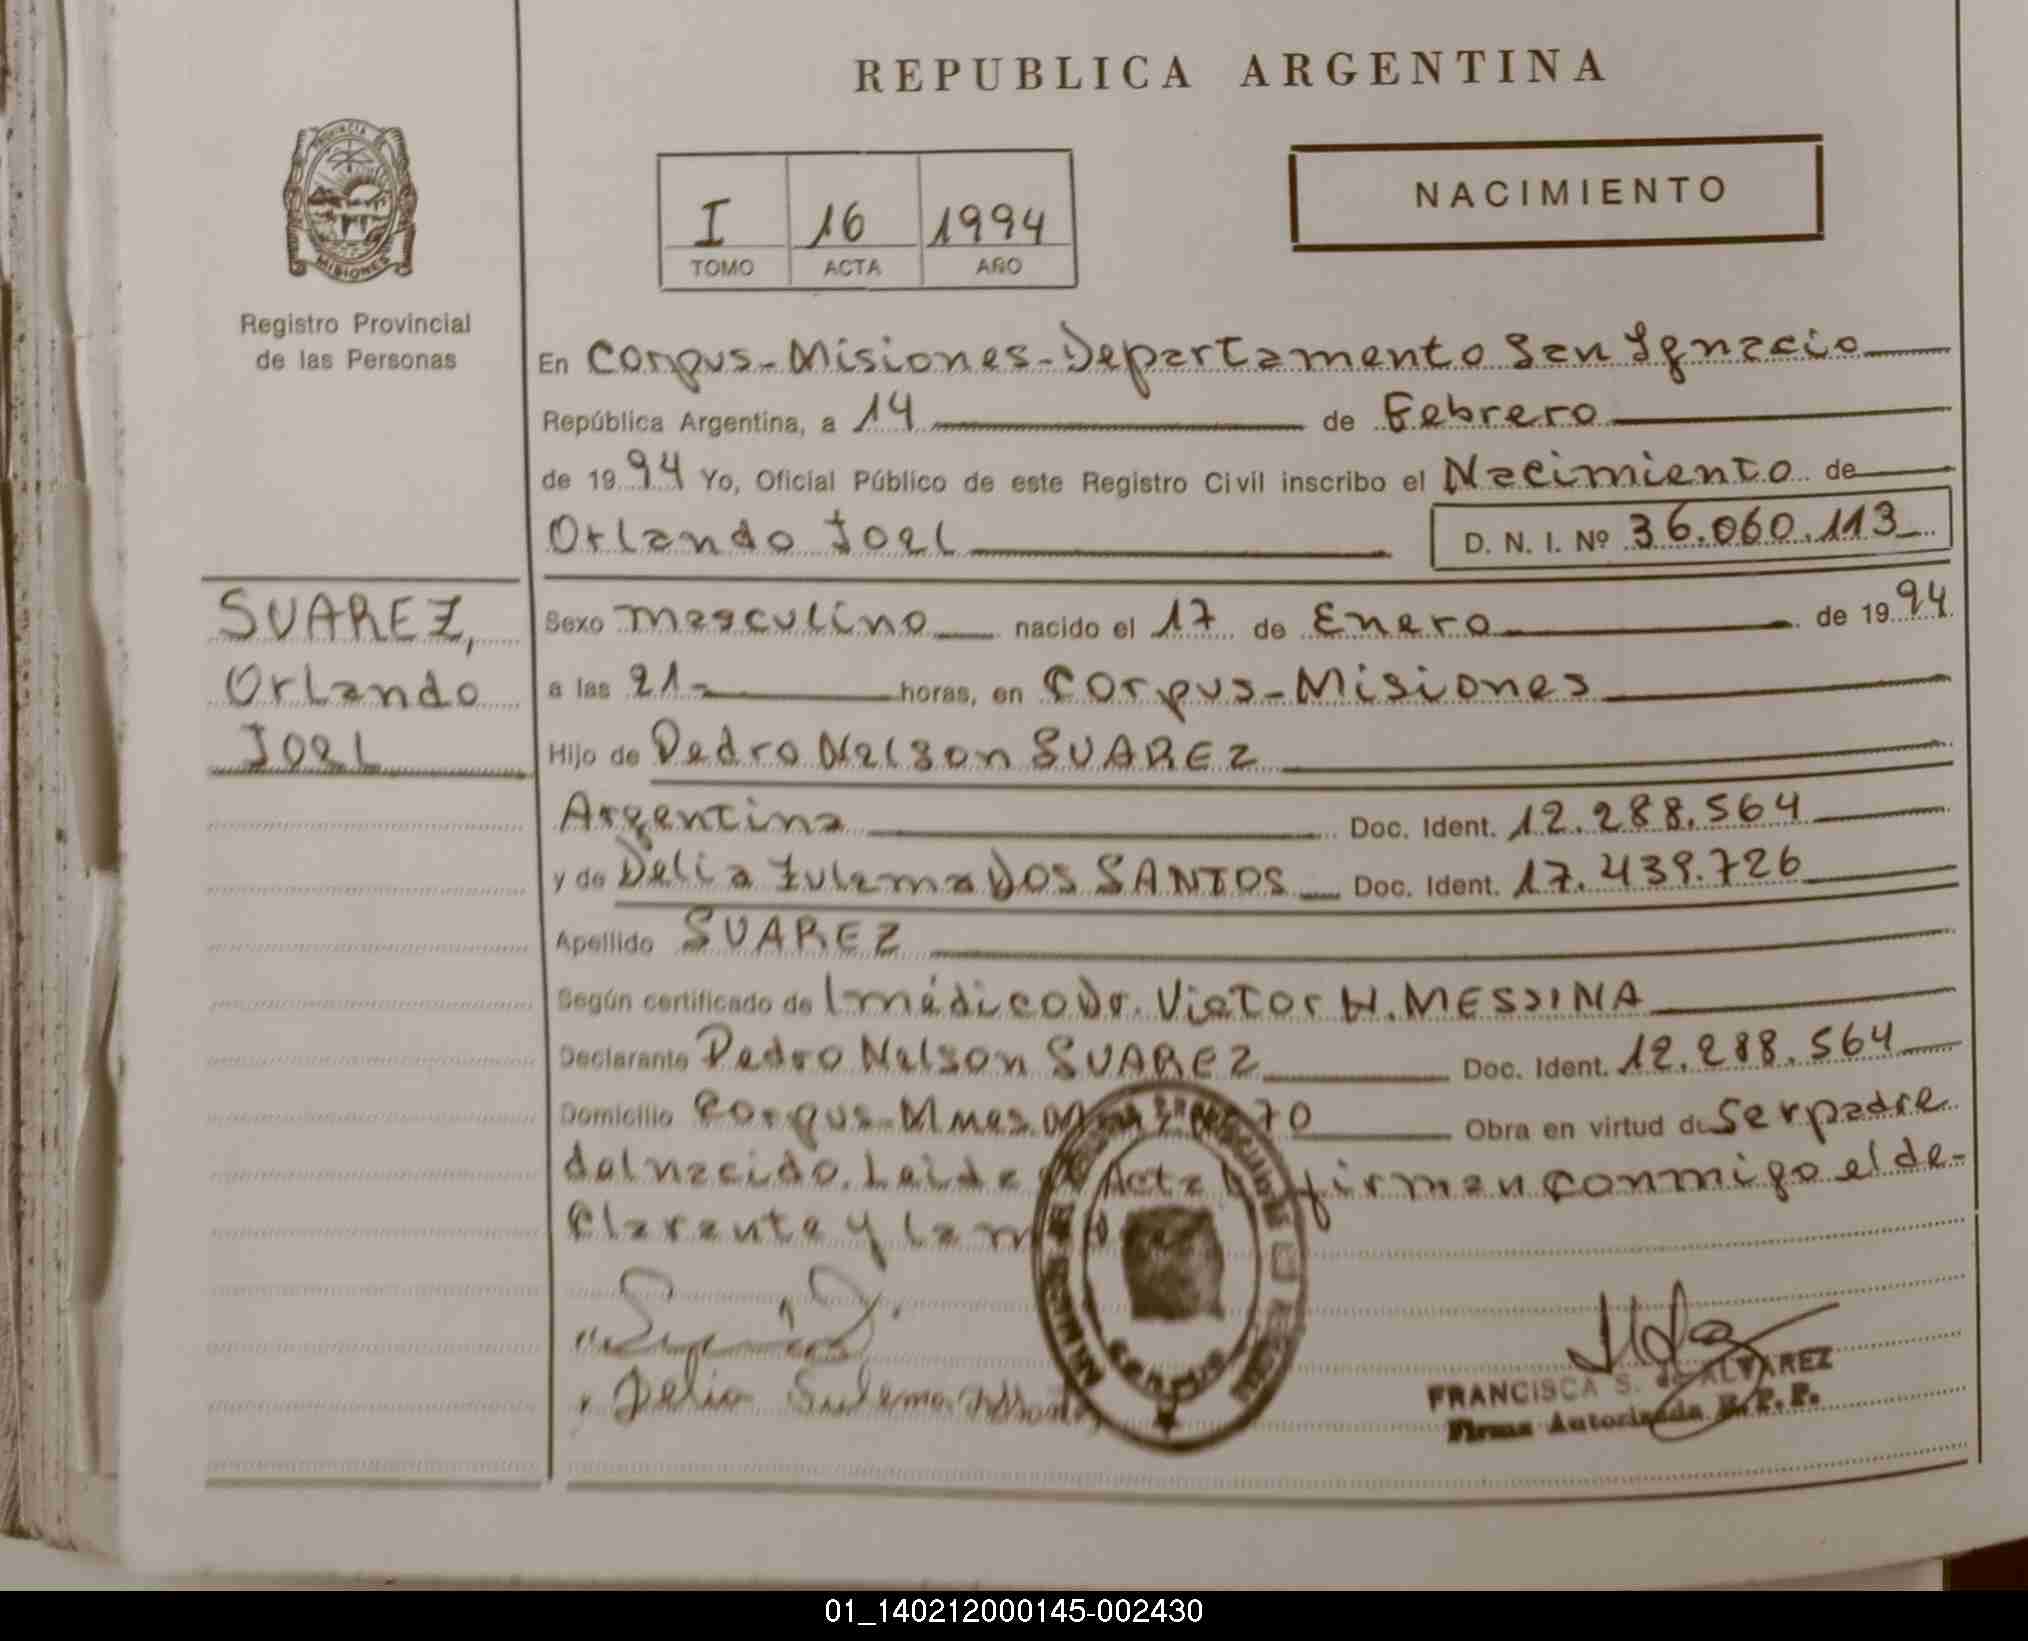 REPUBLICA ARGENTINA
PROVINCIA
MISIONES
Registro Provincial
de las Personas
I 16 1994
TOMO ACTA AÑO
NACIMIENTO
En Corpus-Misiones-Departamento San Ignacio
República Argentina, a 14 de Febrero
de 1994 Yo, Oficial Público de este Registro Civil inscribo el Nacimiento de
Orlando Joel D. N. I. Nº 36.060.113
SUAREZ,
Orlando
Joel
Sexo masculino nacido el 17 de Enero de 1994
a las 21- horas, en Corpus-Misiones
Hijo de Pedro Nelson SUAREZ
Argentina Doc. Ident. 12.288.564
y de Delia Zulema DOS SANTOS Doc. Ident. 17.439.726
Apellido SUAREZ
Según certificado de l médico Dr. Victor H. MESSINA
Declarante Pedro Nelson SUAREZ Doc. Ident. 12.288.564
Domicilio Corpus-Mnes. 70 Obra en virtud de Ser padre
del nacido. Leida Acta firman conmigo el de-
clarante y la
Delia Sulema
FRANCISCA S. de ALVAREZ
Firma Autorizada R.P.P.
CORPUS
01_140212000145-002430